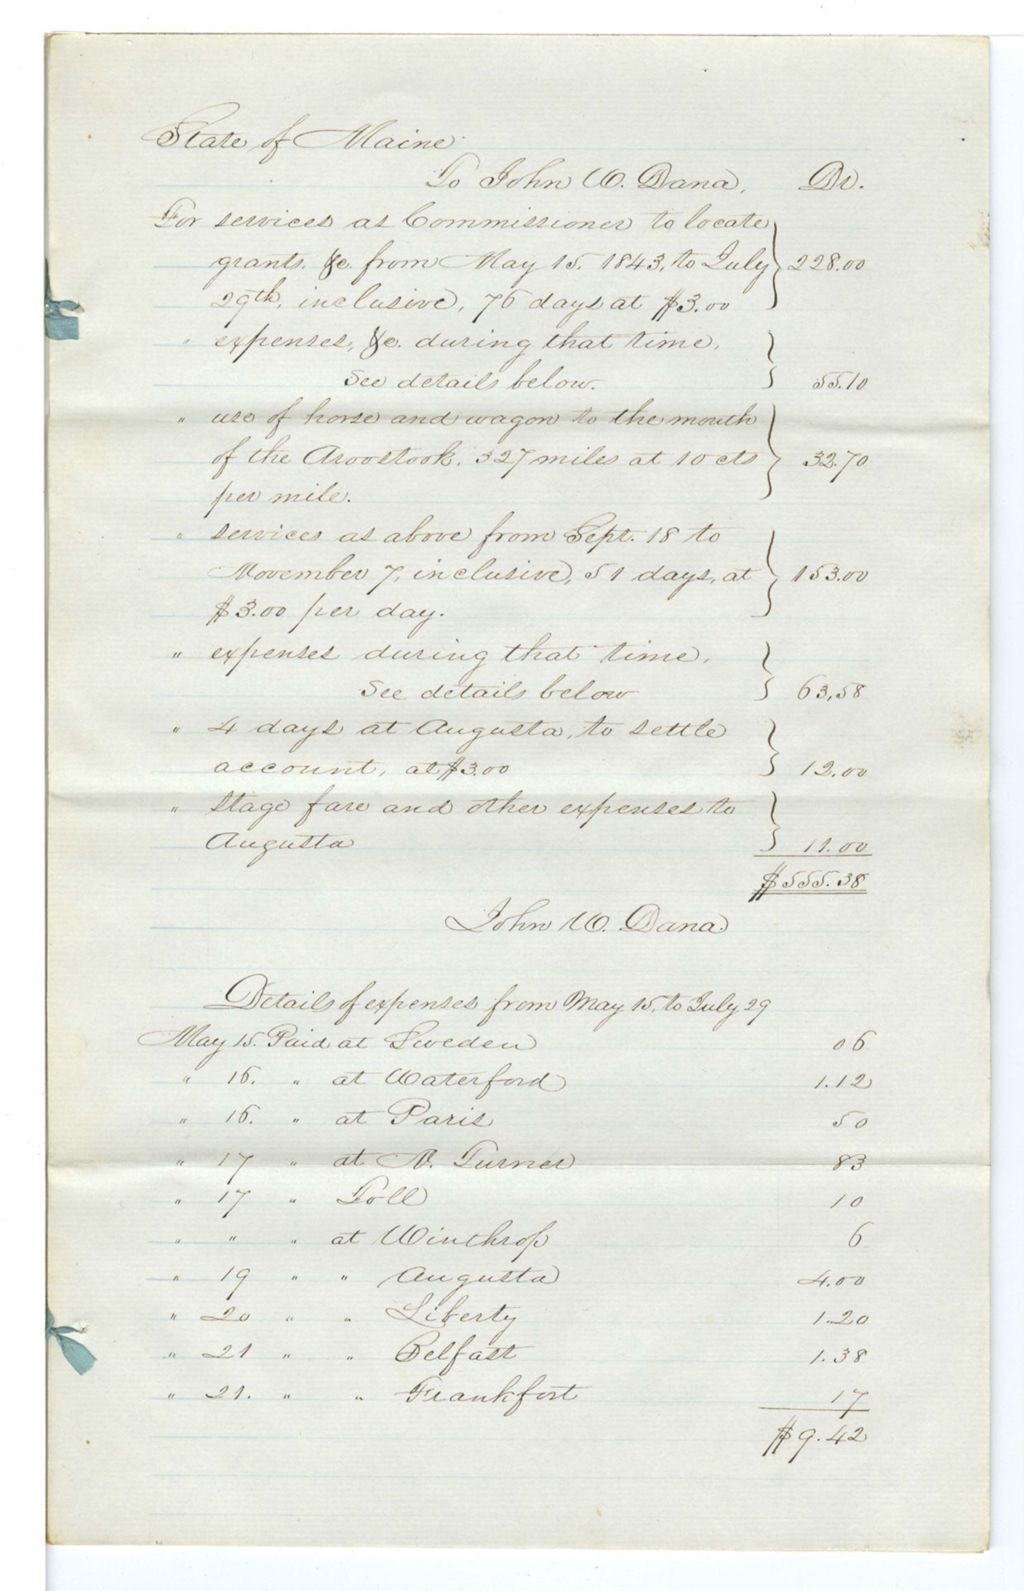 State of Maine
To John W. Dana, Dr.
For services as Commissioner to locate
grants, &c. from May 15, 1843, to July 228.00
29th, inclusive, 76 days at $3.00
" expenses, &c. during that time,
See details below. 55.10
" use of horse and wagon to the mouth
of the Aroostook, 327 miles at 10 cts 32.70
per mile.
" services as above from Sept. 18 to
November 7, inclusive, 51 days, at 153.00
$3.00 per day.
" expenses during that time,
See details below 63,58
" 4 days at Augusta, to settle
account, at $3.00 12.00
" stage fare and other expenses to
Augusta 11.00
$555.38
John W. Dana
Details of expenses from May 15, to July 29
May 15. Paid at Sweden 06
" 16. " at Waterford 1.12
" 16. " at Paris 50
" 17 " at N. Turner 83
" 17 " Toll 10
" " " at Winthrop 6
" 19 " " Augusta 4.00
" 20 " " Liberty 1.20
" 21 " " Belfast 1.38
" 21. " " Frankfort 17
$9.42